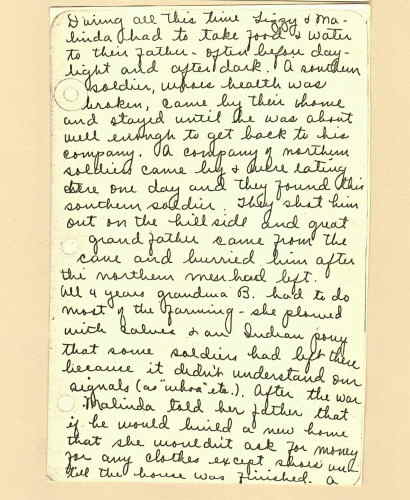 During all this time Lizzy & Ma-
linda had to take food & water
to their father - often before day-
light and after dark. A southern
soldier, whose health was
broken, came by their home
and stayed until he was about
well enough to get back to his
company. A company of northern
soldiers came by & were eating
there one day and they found this
southern soldier. They shot him
out on the hillside and great
grandfather came from the
cave and burried him after
the northern men had left.
All 4 years grandma B. had to do
most of the farming - she plowed
with calves & an Indian pony
that some soldiers had left there
because it didn't understand our
signals (as "whoa" etc.). After the war
Malinda told her father that
if he would build a new home
that she wouldn't ask for money
for any clothes except shoes un-
til the house was finished. A